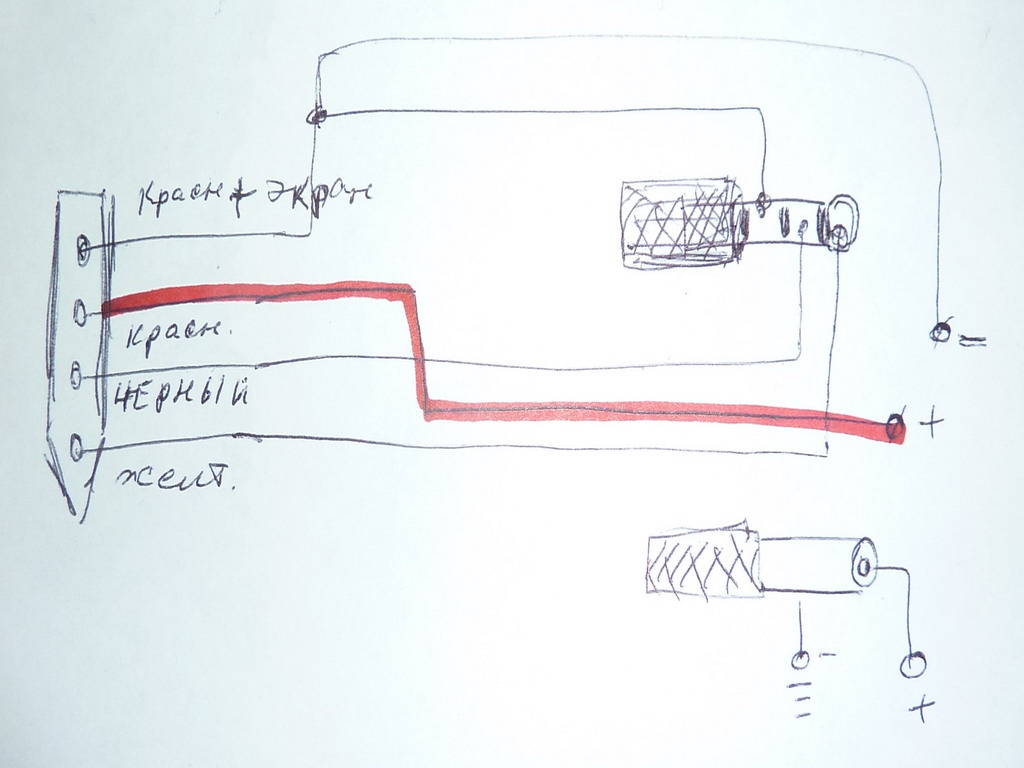 Красн + экран
=
красн.
ЧЕРНЫЙ
+
желт.
-
+